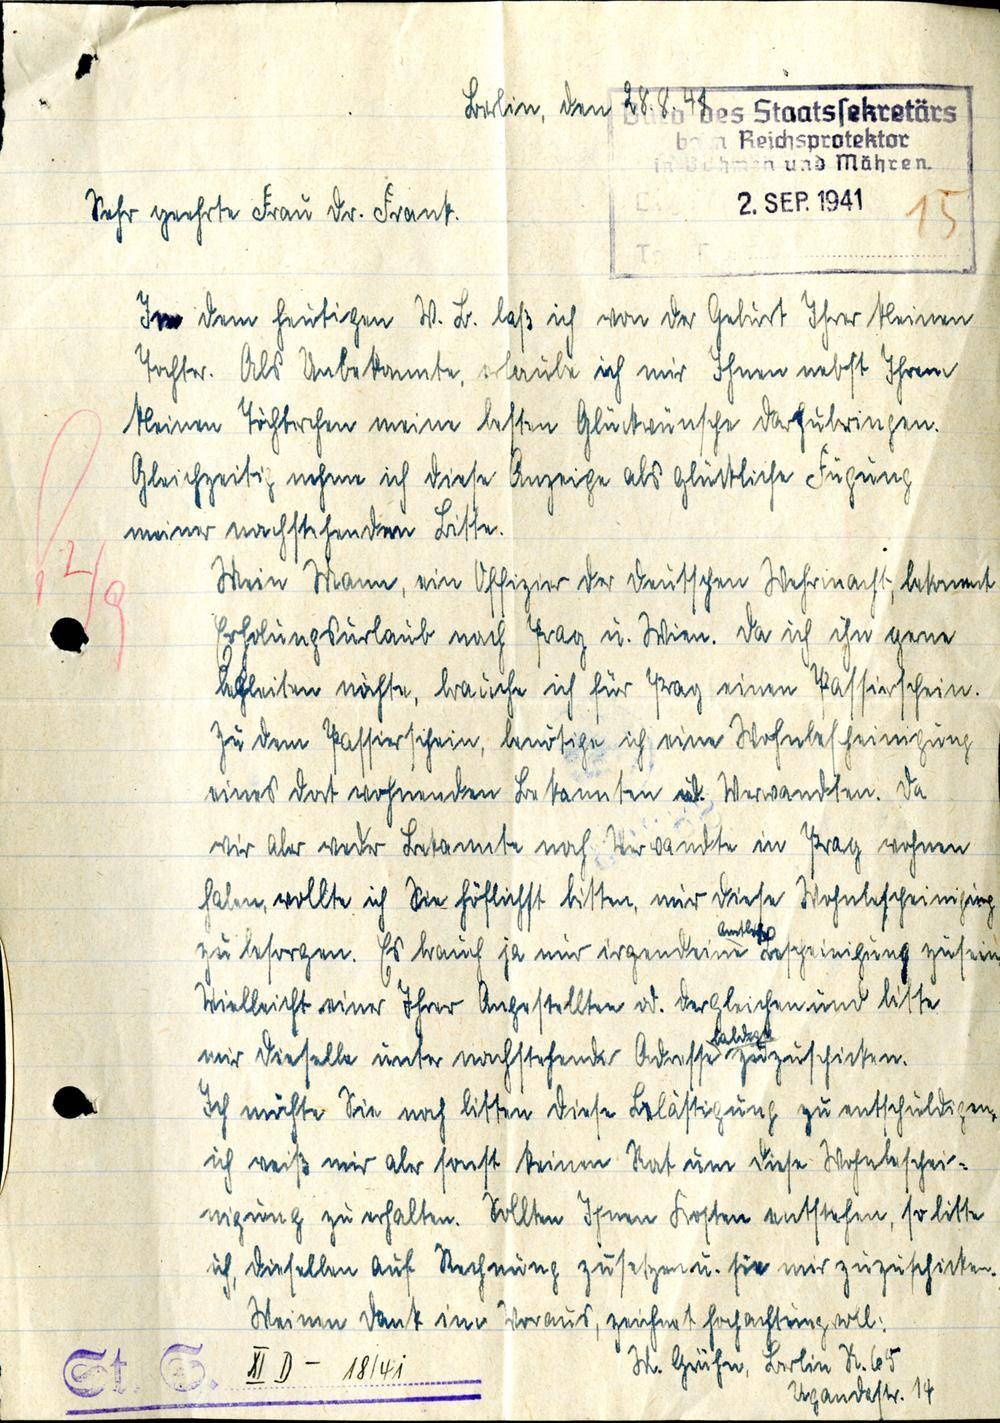 Berlin, den 28.8.41
Büro des Staatssekretärs
beim Reichsprotektor
in Böhmen und Mähren.
2. SEP. 1941
15
Sehr geehrte Frau Dr. Frank.
In dem heutigen W. B. laß ich von der Geburt Ihrer kleinen
Tochter. Als Unbekannte, erlaube ich mir Ihnen nebst Ihrem
kleinen Töchterchen meine besten Glückwünsche darzubringen.
Gleichzeitig nehme ich diese Anzeige als glückliche Fügung
meiner nachstehenden Bitte.
2/9
Mein Mann, ein Offizier der deutschen Wehrmacht, bekommt
Erholungsurlaub nach Prag u. Wien. Da ich ihn gerne
begleiten möchte, brauche ich für Prag einen Passierschein.
Zu dem Passierschein, benötige ich eine Wohnbescheinigung
eines dort wohnenden Bekannten od. Verwandten. Da
wir aber weder Bekannte noch Verwandte in Prag wohnen
haben, wollte ich Sie höflichst bitten, mir diese Wohnbescheinigung
zu besorgen. Es brauch ja nur irgendeine amtliche Bescheinigung zu sein
Vielleicht einer Ihrer Angestellten od. dergleichen und bitte
mir dieselbe unter nachstehender Adresse baldigst zuzuschicken.
Ich möchte Sie noch bitten diese Belästigung zu entschuldigen,
ich weiß mir aber sonst keinen Rat um diese Wohnbeschei-
nigung zu erhalten. Sollten Ihnen Kosten entstehen, so bitte
ich, dieselben auf Rechnung zu setzen u. sie mir zuzuschicken.
Meinen Dank im Voraus, zeichnet hochachtungsvoll:
M. Grühn, Berlin N. 65
Ugandastr. 14
St. S. XI D - 18/41